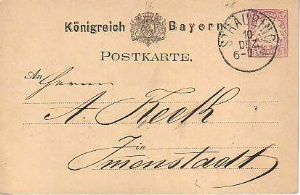 Königreich Bayern.
POSTKARTE.
STRAUBING
10
DEZ
6-7
An Herrn
A. Keck
in
Immenstadt